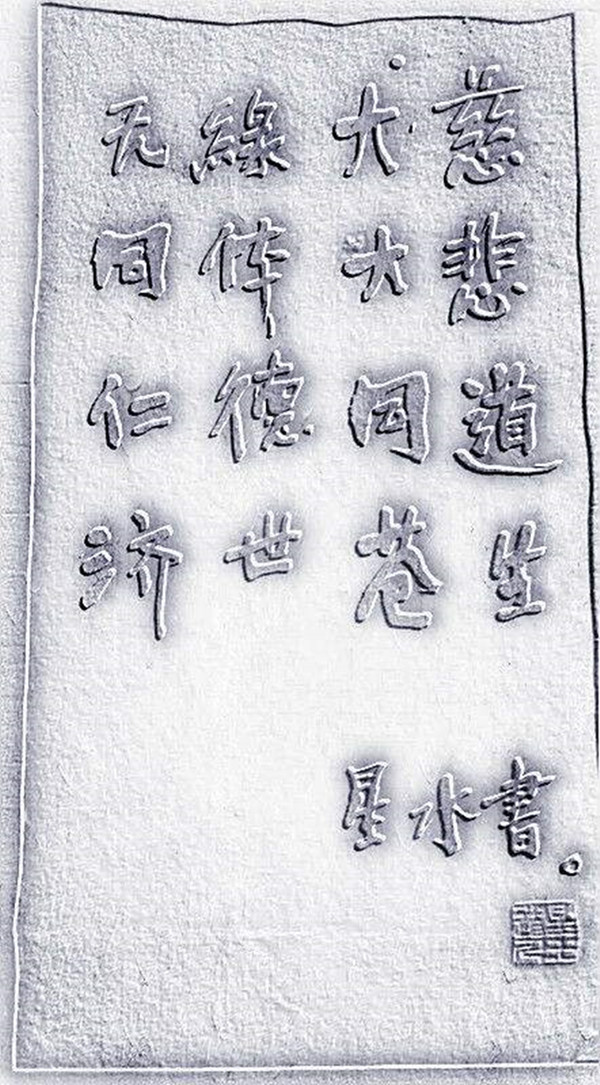 无緣大慈
同体大悲
仁德同道
济世苍生
星水書。